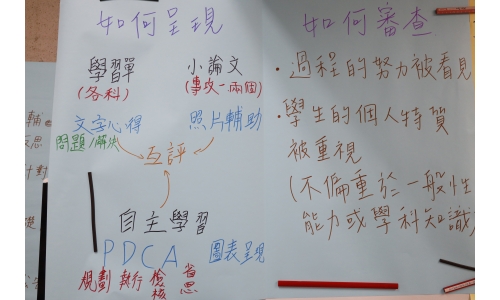 如何呈現
學習單
(各科)
小論文
(專攻一兩個)
文字心得
問題/解決
照片輔助
互評
自主學習
PDCA
圖表呈現
規劃 執行 檢核 省思
如何審查
・過程的努力被看見
・學生的個人特質
被重視
(不偏重於一般性
能力或學科知識)
輔
思
計對
礎